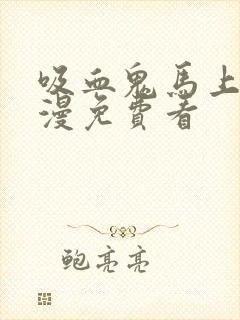 吸血鬼馬上
漫免費看
鲍亮亮